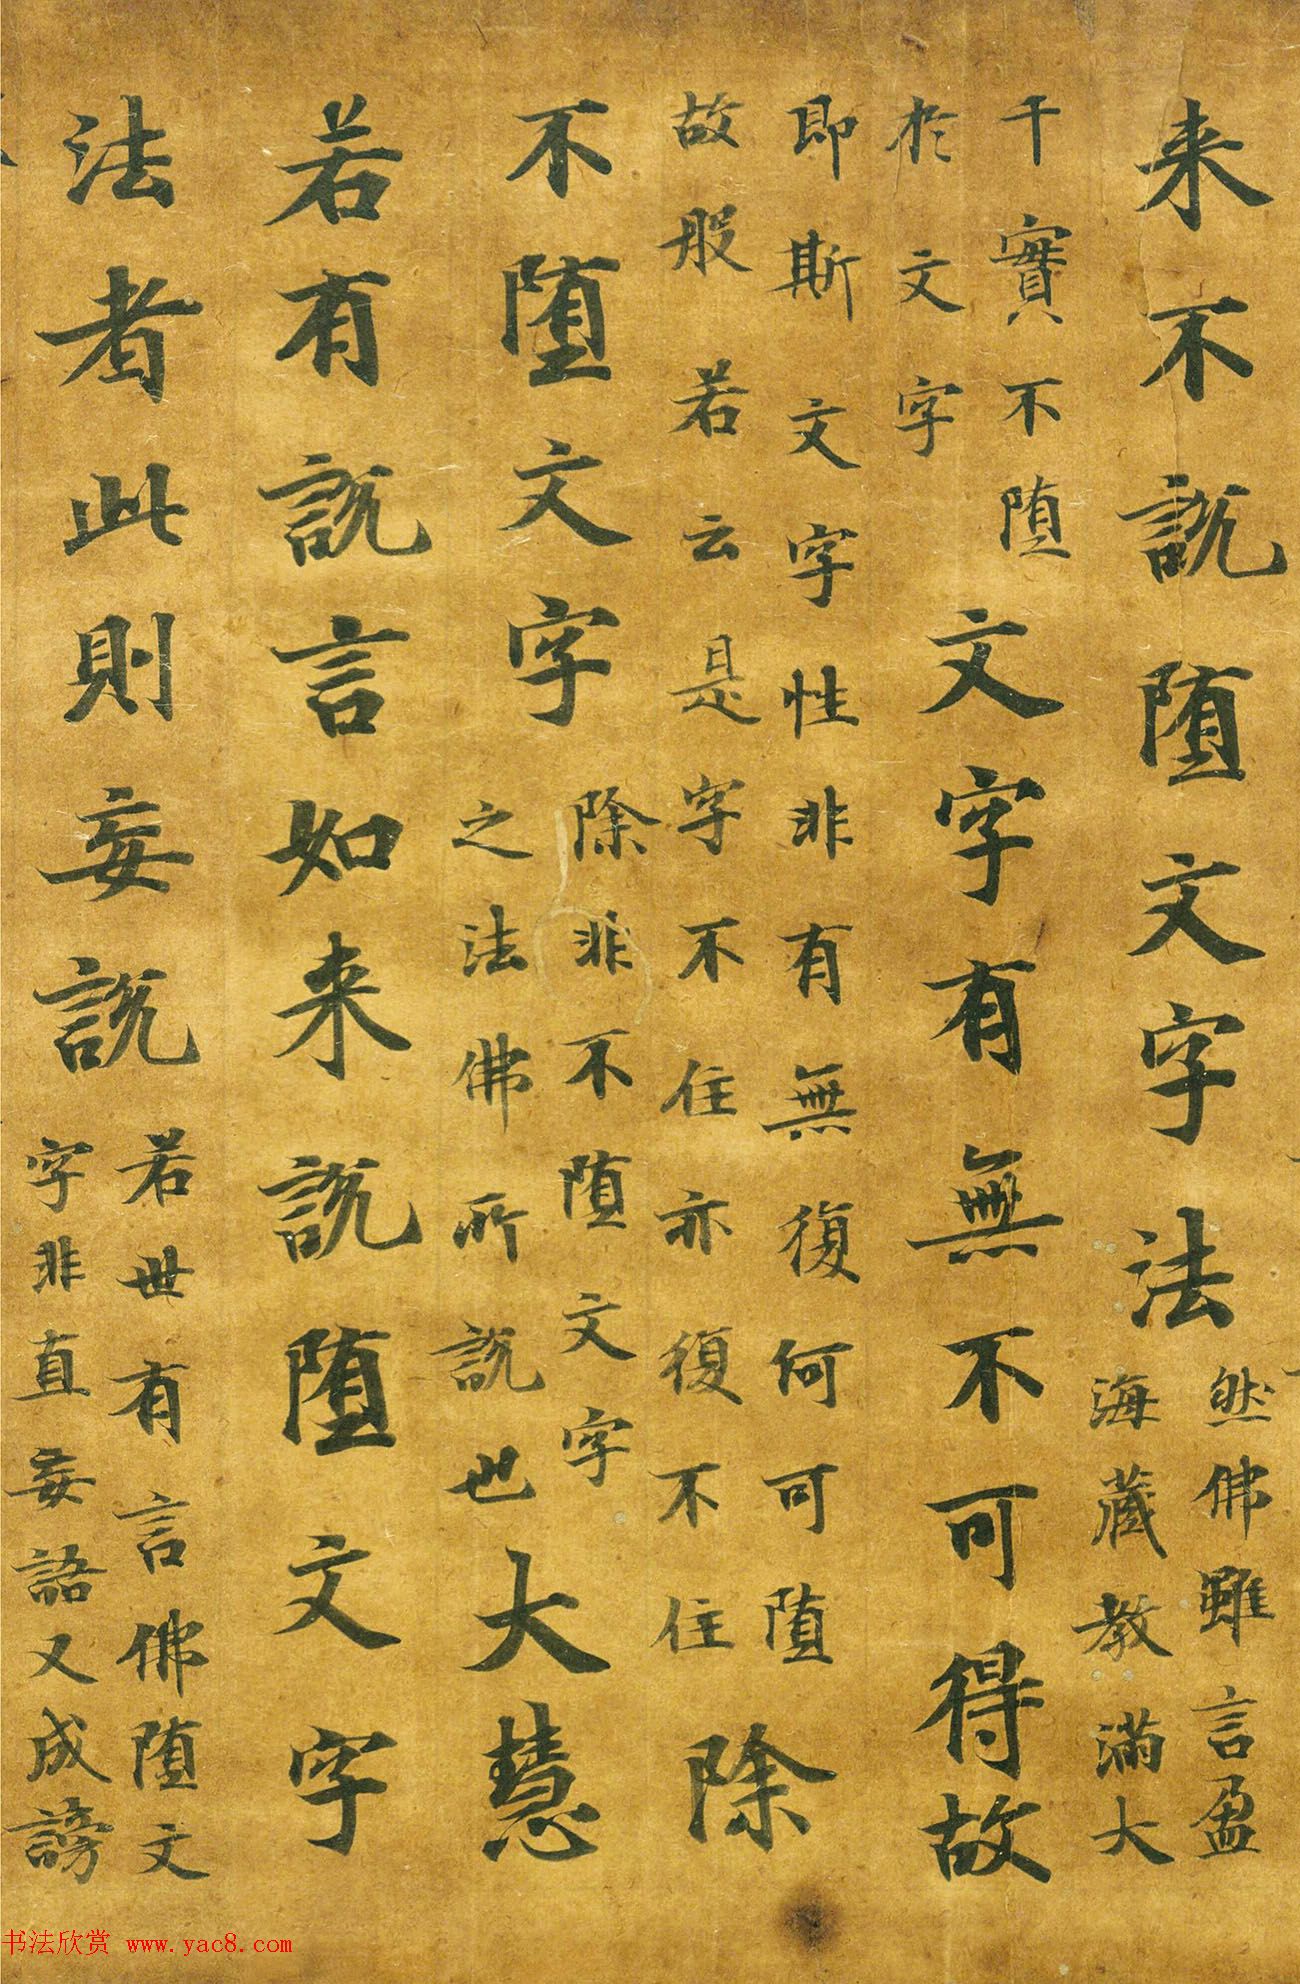 来不說堕文字法
然佛雖言盈
海藏教滿大
千實不堕
於文字
文字有無不可得故
即斯文字性非有無復何可堕
故般若云是字不住亦復不住
除
不堕文字
除非不堕文字
之法佛所說也
大慧
若有說言如来說堕文字
法者此則妄說
若世有言佛堕文
字非直妄語又成謗
书法欣赏 www.yac8.com